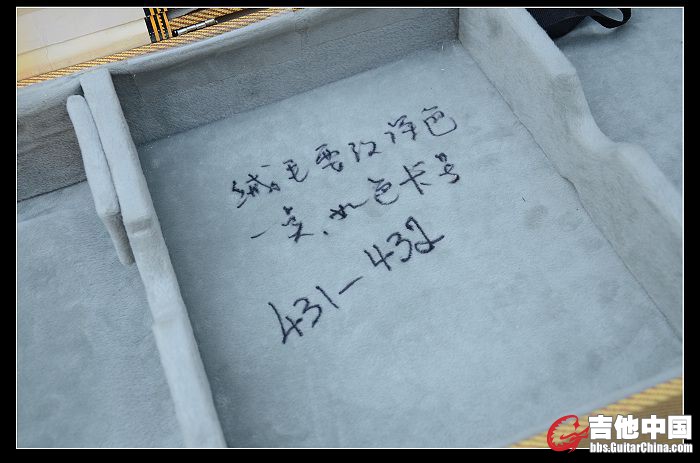 绒毛要改深色
一点、如色卡号
431-432
吉他中国
bbs.GuitarChina.com